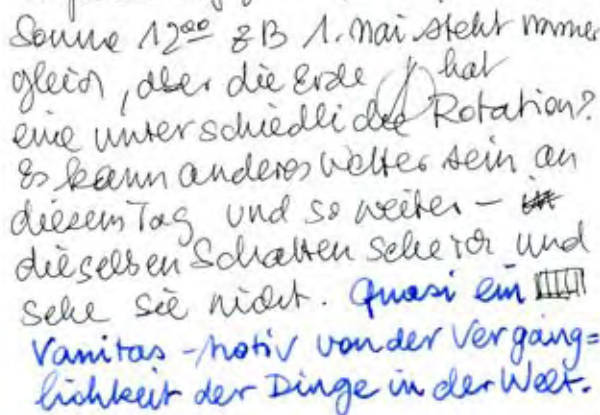 Sonne 12⁰⁰ z B 1. Mai steht immer
gleich, aber die Erde hat
eine unterschiedliche Rotation?
Es kann anderes Wetter sein an
diesem Tag und so weiter –
dieselben Schatten sehe ich und
sehe sie nicht. Quasi ein
Vanitas-Motiv von der Vergäng=
lichkeit der Dinge in der Welt.